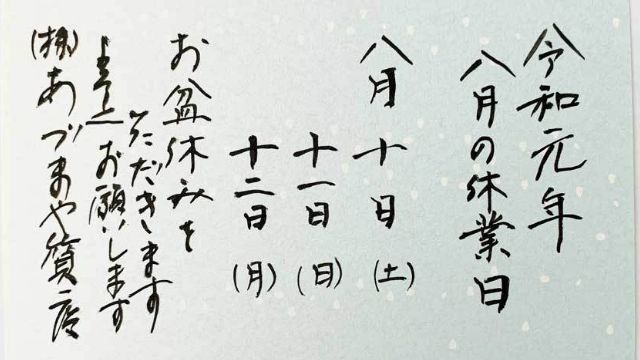 令和元年
八月の休業日
八月十日(土)
十一日(日)
十二日(月)
お盆休みを
いただきます
お願いします
(株)あづまや質店